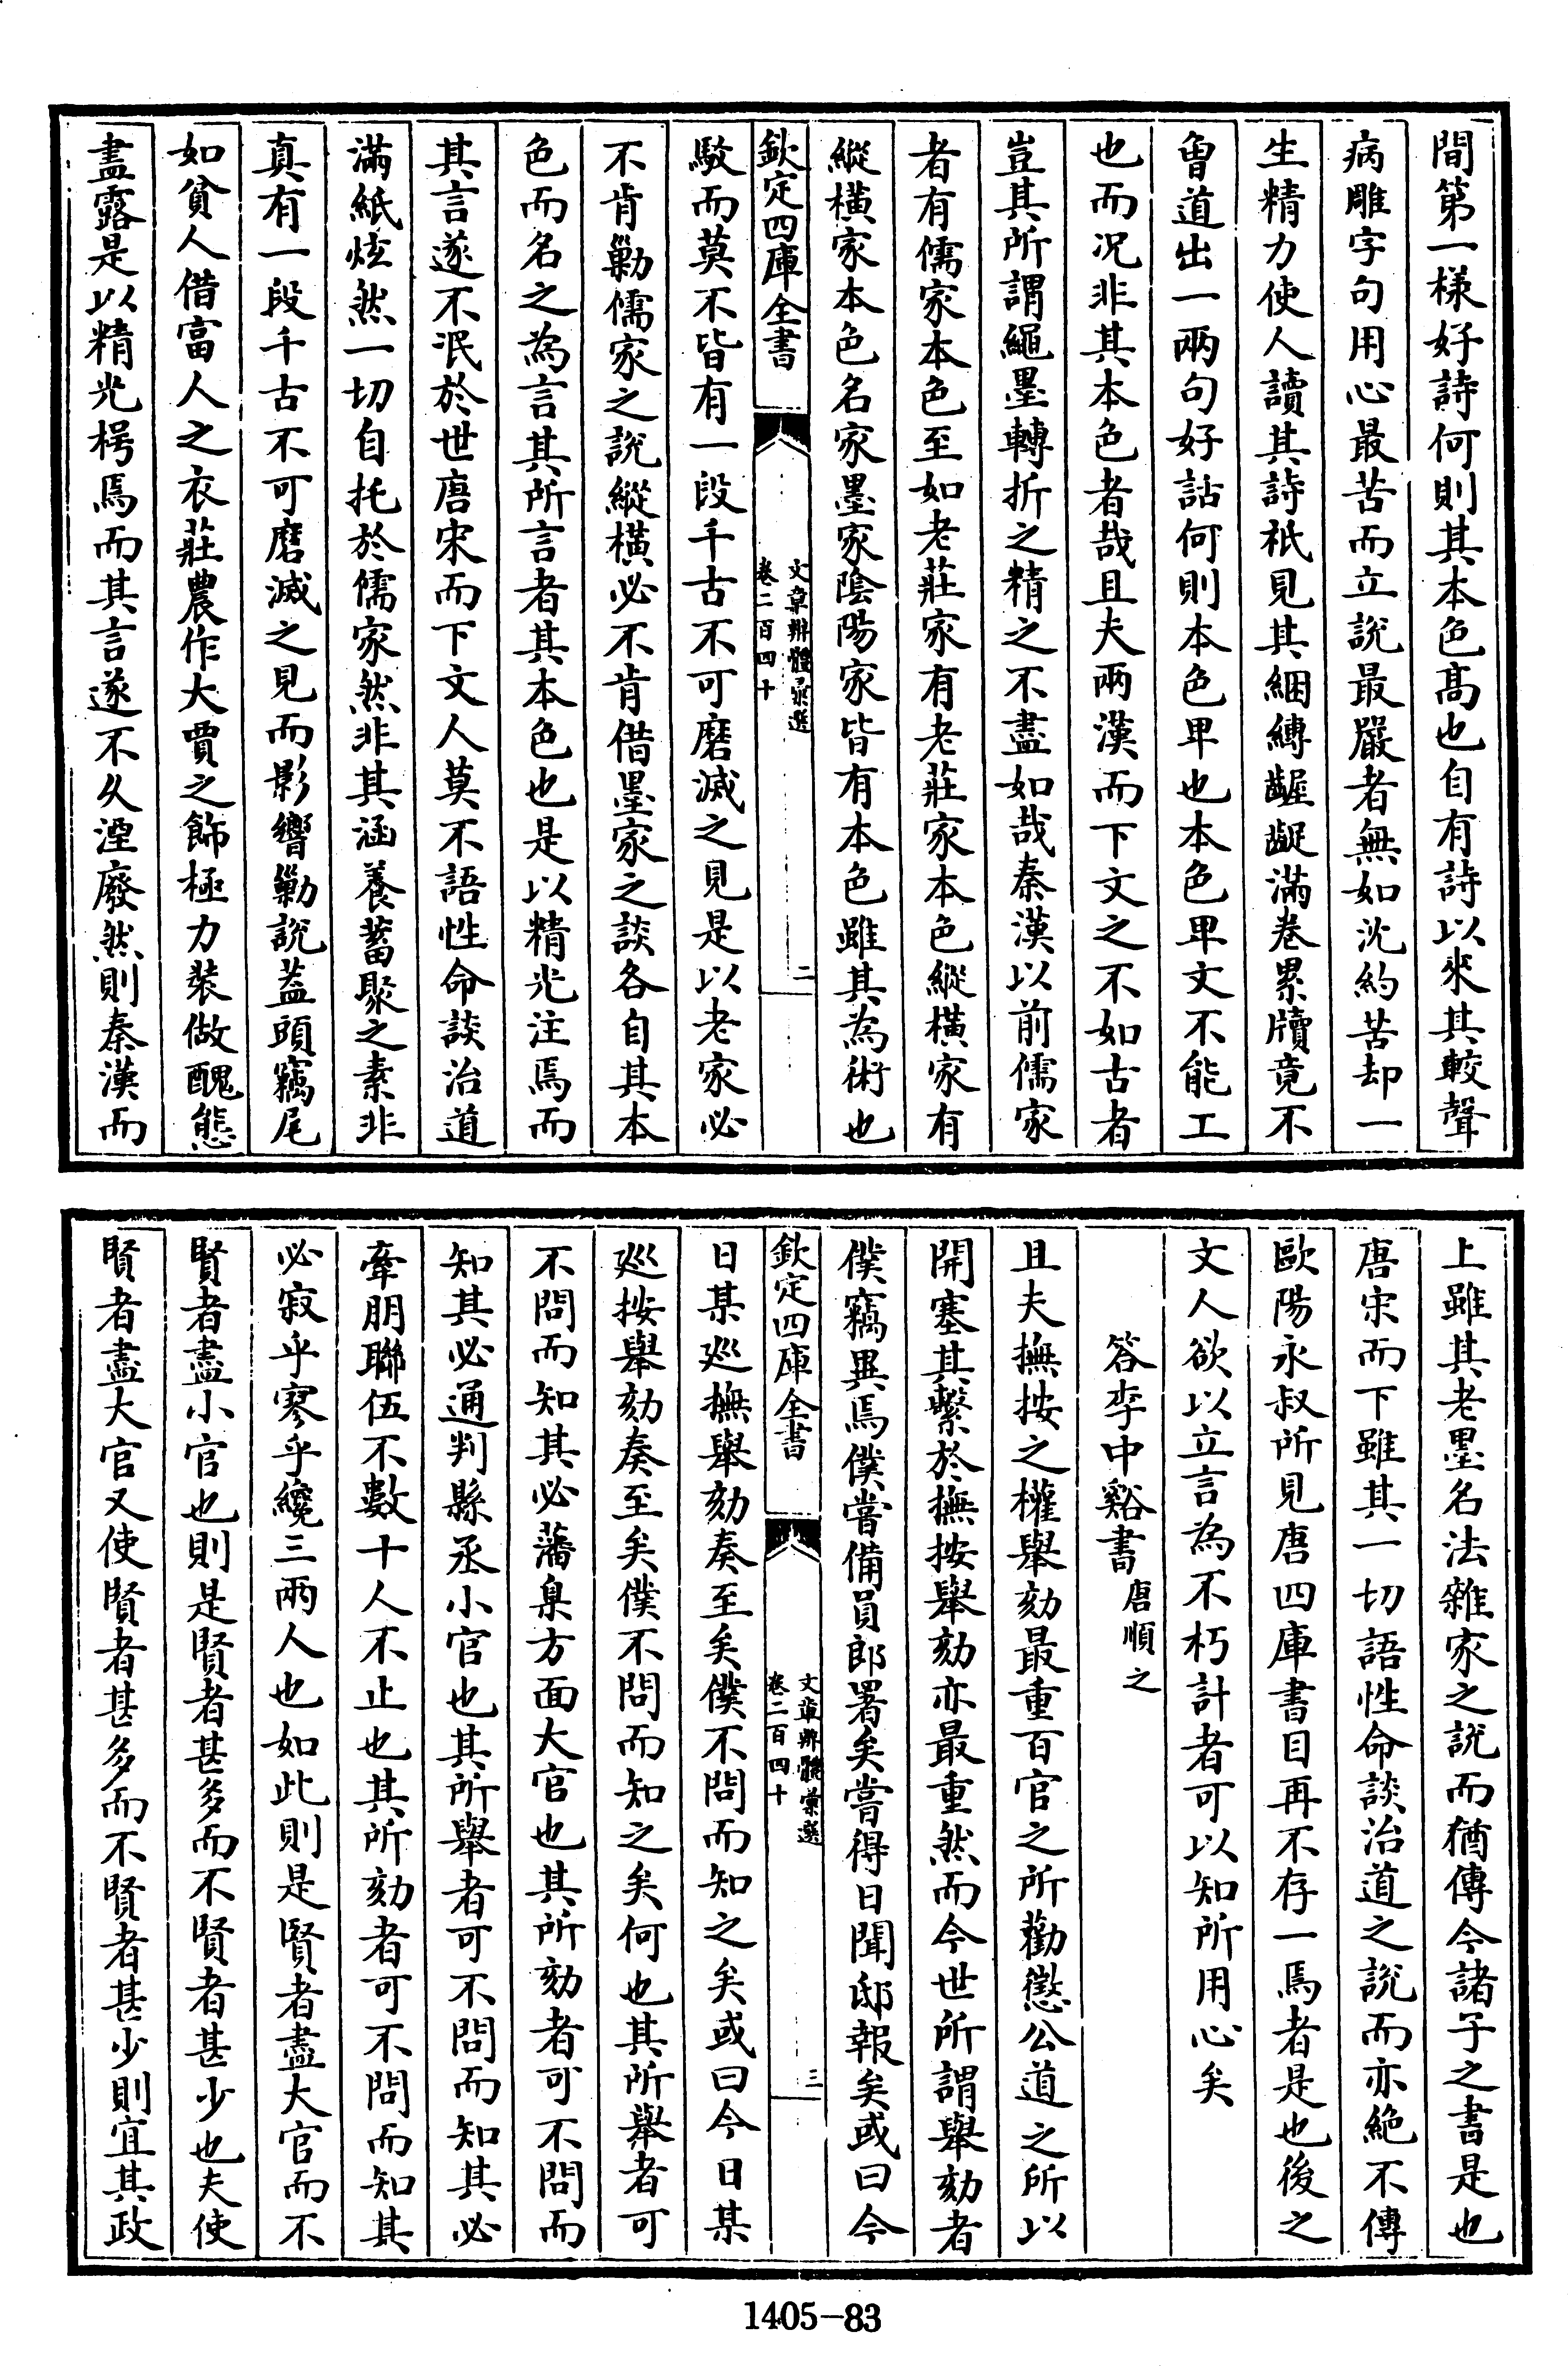 間第一様好詩何則其本色髙也自有詩以來其較聲
病雕字句用心最苦而立說最嚴者無如沈約苦却一
生精力使人讀其詩祇見其綑縛齷齪滿卷累牘竟不
曾道出一兩句好話何則本色卑也本色卑文不能工
也而况非其本色者哉且夫兩漢而下文之不如古者
豈其所謂繩墨轉折之精之不盡如哉秦漢以前儒家
者有儒家本色至如老莊家有老莊家本色縱横家有
縱横家本色名家墨家隂陽家皆有本色雖其為術也
欽定四庫全書
文章辨體彙選
卷二百四十
二
駁而莫不皆有一段千古不可磨滅之見是以老家必
不肯勦儒家之說縱横必不肯借墨家之談各自其本
色而名之為言其所言者其本色也是以精光注焉而
其言遂不泯於世唐宋而下文人莫不語性命談治道
滿紙炫然一切自托於儒家然非其涵養蓄聚之素非
真有一段千古不可磨滅之見而影響勦說葢頭竊尾
如貧人借富人之衣莊農作大賈之飾極力裝做醜態
盡露是以精光枵焉而其言遂不久湮廢然則秦漢而
上雖其老墨名法雜家之說而猶傳今諸子之書是也
唐宋而下雖其一切語性命談治道之說而亦絶不傳
歐陽永叔所見唐四庫書目再不存一焉者是也後之
文人欲以立言為不朽計者可以知所用心矣
答李中谿書 唐順之
且夫撫按之權舉劾最重百官之所勸懲公道之所以
開塞其繫於撫按舉劾亦最重然而今世所謂舉劾者
僕竊異焉僕嘗備員郎署矣嘗得日聞邸報矣或曰今
欽定四庫全書
文章辨體彙選
卷二百四十
三
日某廵撫舉劾奏至矣僕不問而知之矣或曰今日某
廵按舉劾奏至矣僕不問而知之矣何也其所舉者可
不問而知其必藩臬方面大官也其所劾者可不問而
知其必通判縣丞小官也其所舉者可不問而知其必
牽朋聯伍不數十人不止也其所劾者可不問而知其
必寂乎寥乎纔三兩人也如此則是賢者盡大官而不
賢者盡小官也則是賢者甚多而不賢者甚少也夫使
賢者盡大官又使賢者甚多而不賢者甚少則宜其政
1405-83